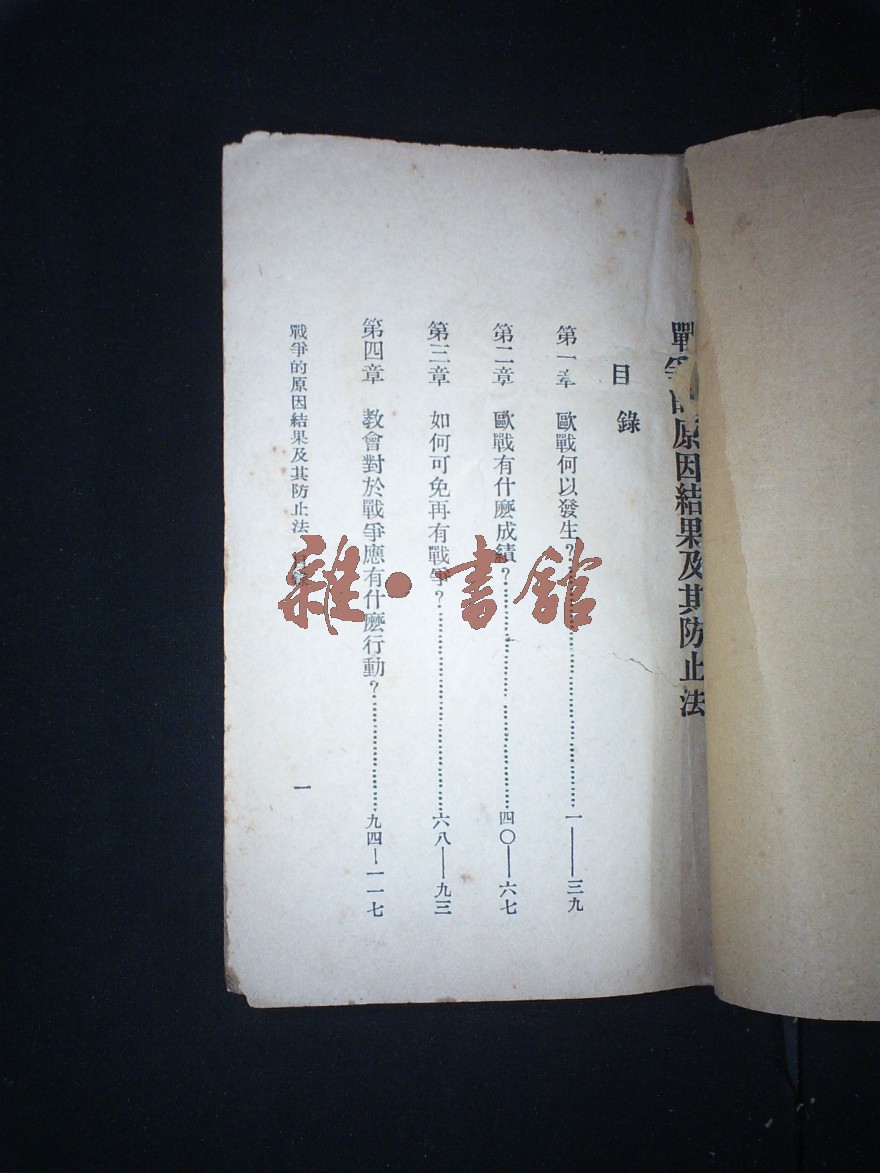 戰爭的原因結果及其防止法
目錄
第一章 歐戰何以發生?……一——三九
第二章 歐戰有什麼成績?……四〇——六七
第三章 如何可免再有戰爭?……六八——九三
第四章 教會對於戰爭應有什麼行動?……九四—一一七
戰爭的原因結果及其防止法 目錄
一
雜·書館